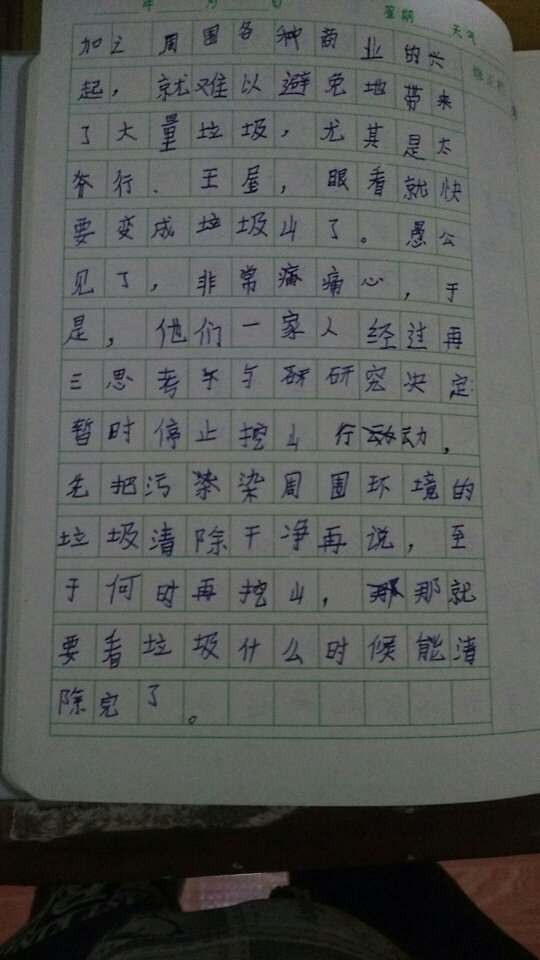 年 月 日 星期 天气
加之周围各种商业的兴
起，就难以避免地带来
了大量垃圾，尤其是太
行、王屋，眼看就快
要变成垃圾山了。愚公
见了，非常痛心，于
是，他们一家人经过再
三思考与研究决定：
暂时停止挖山行动，
先把污染周围环境的
垃圾清除干净再说，至
于何时再挖山，那就
要看垃圾什么时候能清
除完了。